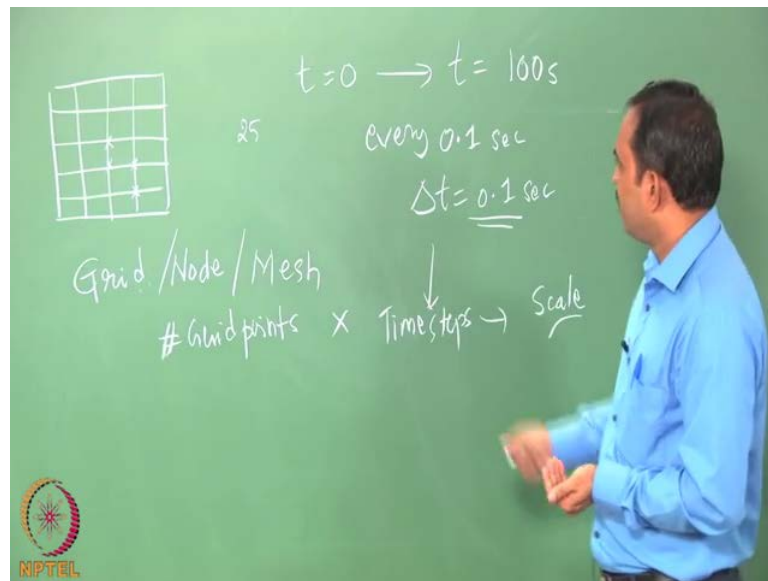 t=0 → t= 100s
25
every 0.1 sec
Δt= 0.1 sec
Grid/Node/Mesh
# Gridpoints × Timesteps → Scale
NPTEL